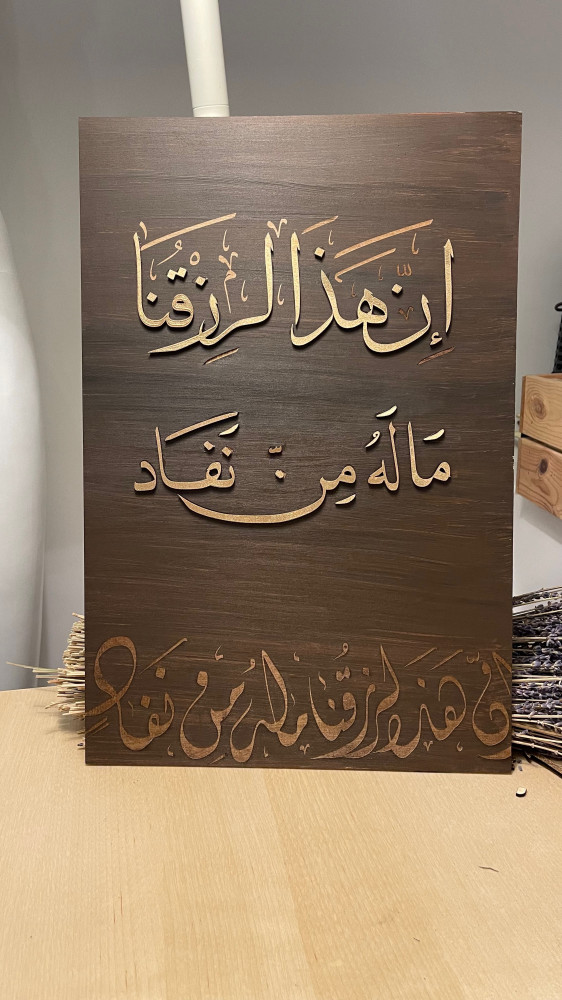 إِنَّ هَذَا لَرِزْقُنَا
مَا لَهُ مِنْ نَفَاد
إِنَّ هَذَا لَرِزْقُنَا مَا لَهُ مِنْ نَفَادٍ